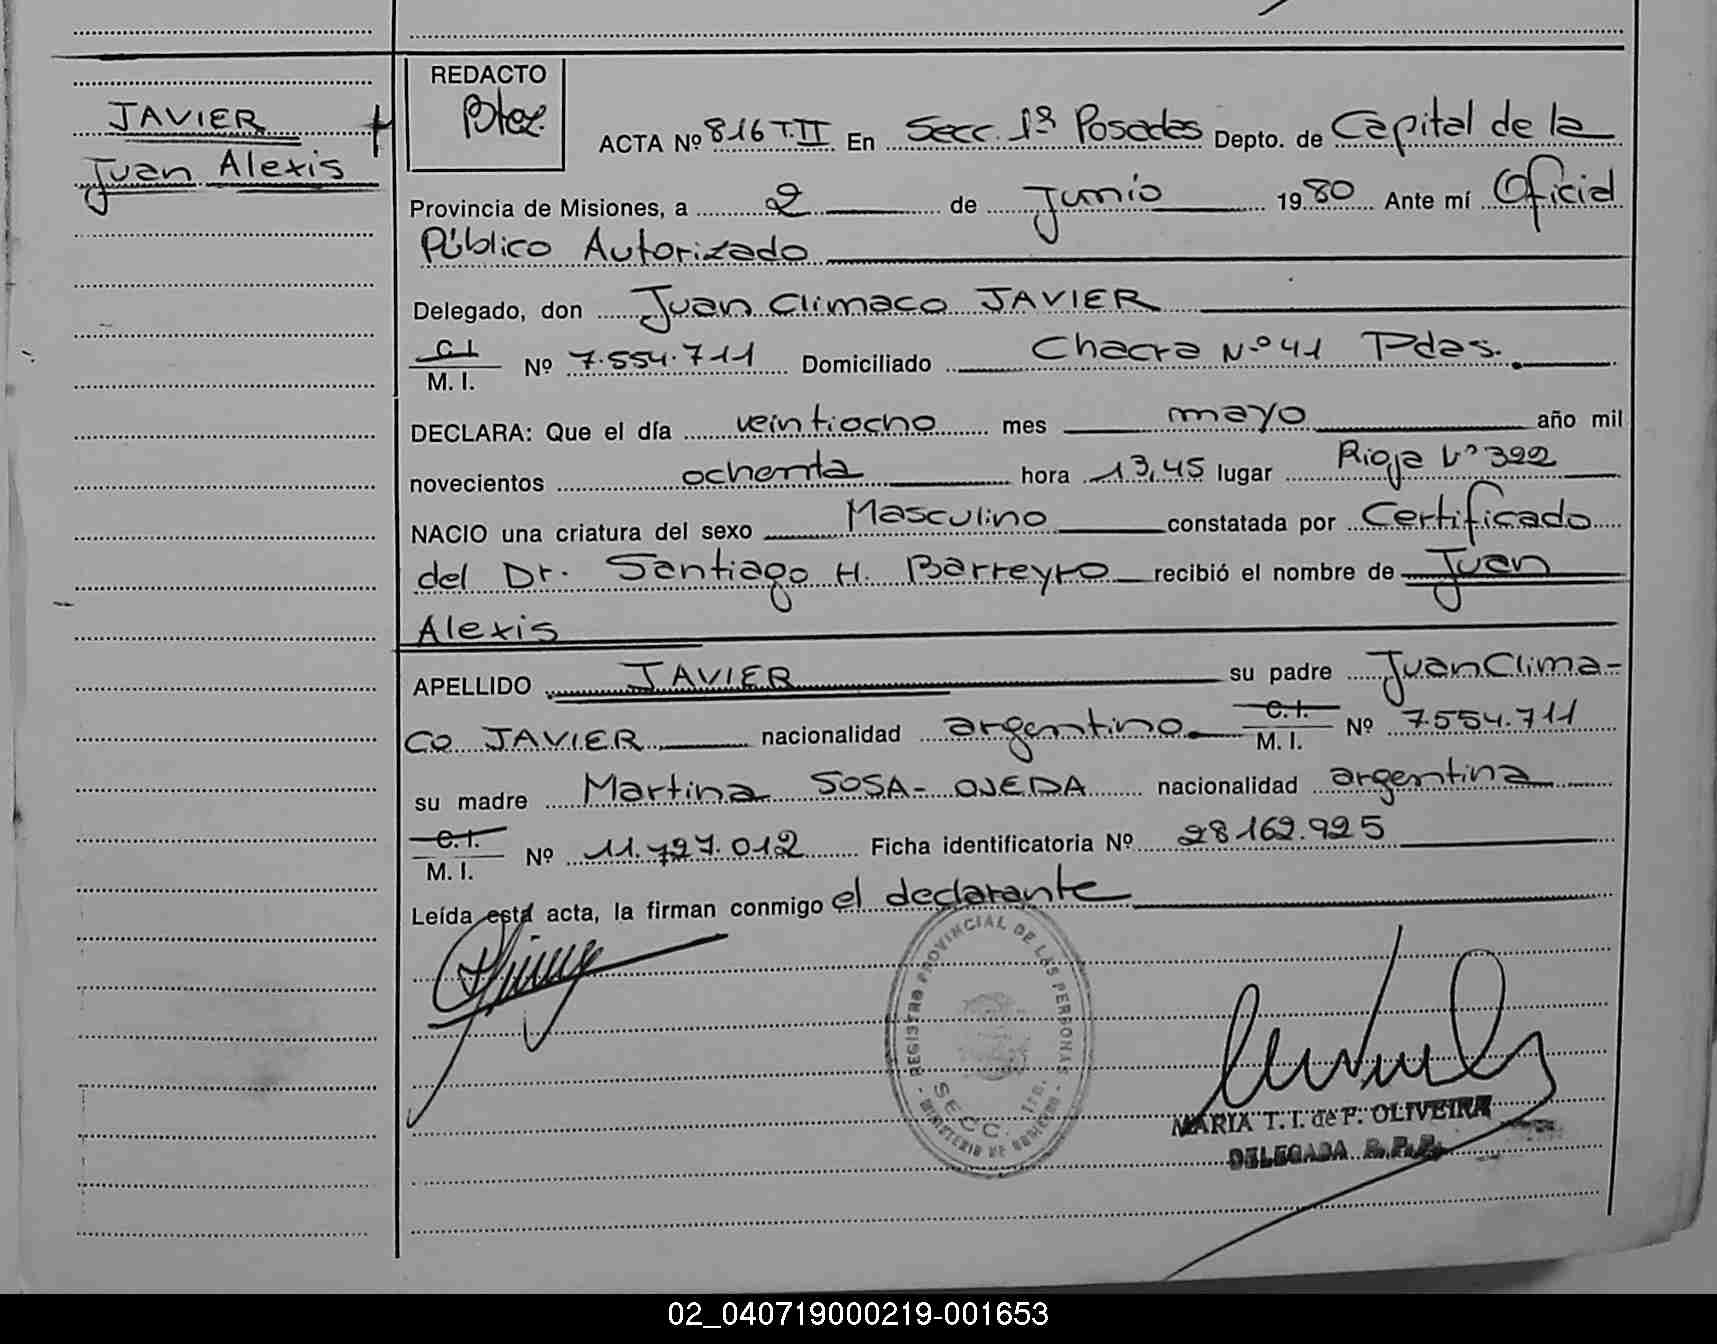 REDACTO
JAVIER
Juan Alexis
ACTA Nº 816 T.II En Secc. 1ª Posadas Depto. de Capital de la
Provincia de Misiones, a 2 de Junio 1980 Ante mí Oficial
Público Autorizado
Delegado, don Juan Climaco JAVIER
C.I.
M. I. Nº 7.554.711 Domiciliado Chacra Nº 41 Pdas.
DECLARA: Que el día veintiocho mes mayo año mil
novecientos ochenta hora 13,45 lugar Rioja Nº 322
NACIO una criatura del sexo Masculino constatada por Certificado
del Dr. Santiago H. Barreyro recibió el nombre de Juan
Alexis
APELLIDO JAVIER su padre Juan Clima-
co JAVIER nacionalidad argentino C.I.
M. I. Nº 7.554.711
su madre Martina SOSA - OJEDA nacionalidad argentina
C.I.
M. I. Nº 11.727.012 Ficha identificatoria Nº 28.162.925
Leída esta acta, la firman conmigo el declarante
REGISTRO PROVINCIAL DE LAS PERSONAS
SECC. 1ra.
MINISTERIO DE GOBIERNO
MARIA T. I. de P. OLIVEIRA
DELEGADA R.P.P.
02_040719000219-001653